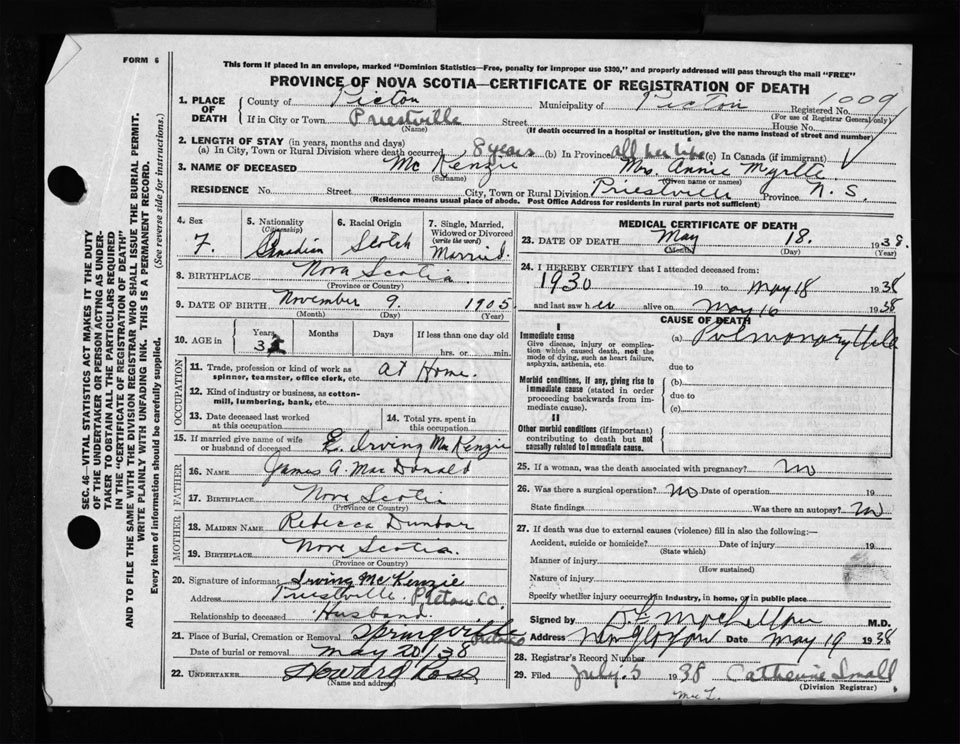 FORM 6
This form if placed in an envelope, marked "Dominion Statistics—Free, penalty for improper use $300," and properly addressed will pass through the mail "FREE"
PROVINCE OF NOVA SCOTIA—CERTIFICATE OF REGISTRATION OF DEATH
1. PLACE OF DEATH
County of Pictou Municipality of Pictou Registered No. 1009
(For use of Registrar General only)
If in City or Town Priestville Street House No.
(Name) (If death occurred in a hospital or institution, give the name instead of street and number)
2. LENGTH OF STAY (in years, months and days)
(a) In City, Town or Rural Division where death occurred 8 years (b) In Province all her life (c) In Canada (if immigrant)
3. NAME OF DECEASED Mc Kenzie Mrs. Annie Myrtle
(Surname) (Given name or names)
RESIDENCE No. Street City, Town or Rural Division Priestville Province N. S.
(Residence means usual place of abode. Post Office Address for residents in rural parts not sufficient)
4. Sex
F.
5. Nationality
(Citizenship)
Canadian
6. Racial Origin
Scotch
7. Single, Married, Widowed or Divorced
(write the word)
Married.
8. BIRTHPLACE Nova Scotia
(Province or Country)
9. DATE OF BIRTH November 9. 1905
(Month) (Day) (Year)
10. AGE in Years Months Days If less than one day old
32 hrs. or min.
OCCUPATION
11. Trade, profession or kind of work as spinner, teamster, office clerk, etc. At Home.
12. Kind of industry or business, as cotton-mill, lumbering, bank, etc.
13. Date deceased last worked at this occupation
14. Total yrs. spent in this occupation
15. If married give name of wife or husband of deceased E. Irving MacKenzie
FATHER
16. NAME James A. MacDonald
17. BIRTHPLACE Nova Scotia
(Province or Country)
MOTHER
18. MAIDEN NAME Rebecca Dunbar
19. BIRTHPLACE Nova Scotia.
(Province or Country)
20. Signature of informant Irving McKenzie
Address Priestville Pictou Co.
Relationship to deceased Husband.
21. Place of Burial, Cremation or Removal Springville
Date of burial or removal May 20/38
22. UNDERTAKER Howard Ross
(Name and address)
MEDICAL CERTIFICATE OF DEATH
23. DATE OF DEATH May 18. 1938.
(Month) (Day) (Year)
24. I HEREBY CERTIFY that I attended deceased from:
1930 19 to May 18 1938
and last saw her alive on May 16 1938
CAUSE OF DEATH
I
Immediate cause
Give disease, injury or complication which caused death, not the mode of dying, such as heart failure, asphyxia, asthenia, etc
(a) Pulmonary
due to
Morbid conditions, if any, giving rise to immediate cause (stated in order proceeding backwards from immediate cause).
(b)
due to
(c)
II
Other morbid conditions (if important) contributing to death but not causally related to immediate cause.
25. If a woman, was the death associated with pregnancy? No
26. Was there a surgical operation? No Date of operation 19
State findings Was there an autopsy? No
27. If death was due to external causes (violence) fill in also the following:—
Accident, suicide or homicide? Date of injury 19
(State which)
Manner of injury
(How sustained)
Nature of injury
Specify whether injury occurred in industry, in home, or in public place
Signed by M.D.
Address New Glasgow Date May 19 1938
28. Registrar's Record Number
29. Filed July. 5 1938 Catherine Small
(Division Registrar)
SEC. 46—VITAL STATISTICS ACT MAKES IT THE DUTY
OF THE UNDERTAKER OR PERSON ACTING AS UNDERTAKER
TO OBTAIN ALL THE PARTICULARS REQUIRED
IN THE "CERTIFICATE OF REGISTRATION OF DEATH"
AND TO FILE THE SAME WITH THE DIVISION REGISTRAR WHO SHALL ISSUE THE BURIAL PERMIT.
WRITE PLAINLY WITH UNFADING INK. THIS IS A PERMANENT RECORD.
Every item of information should be carefully supplied. (See reverse side for instructions.)